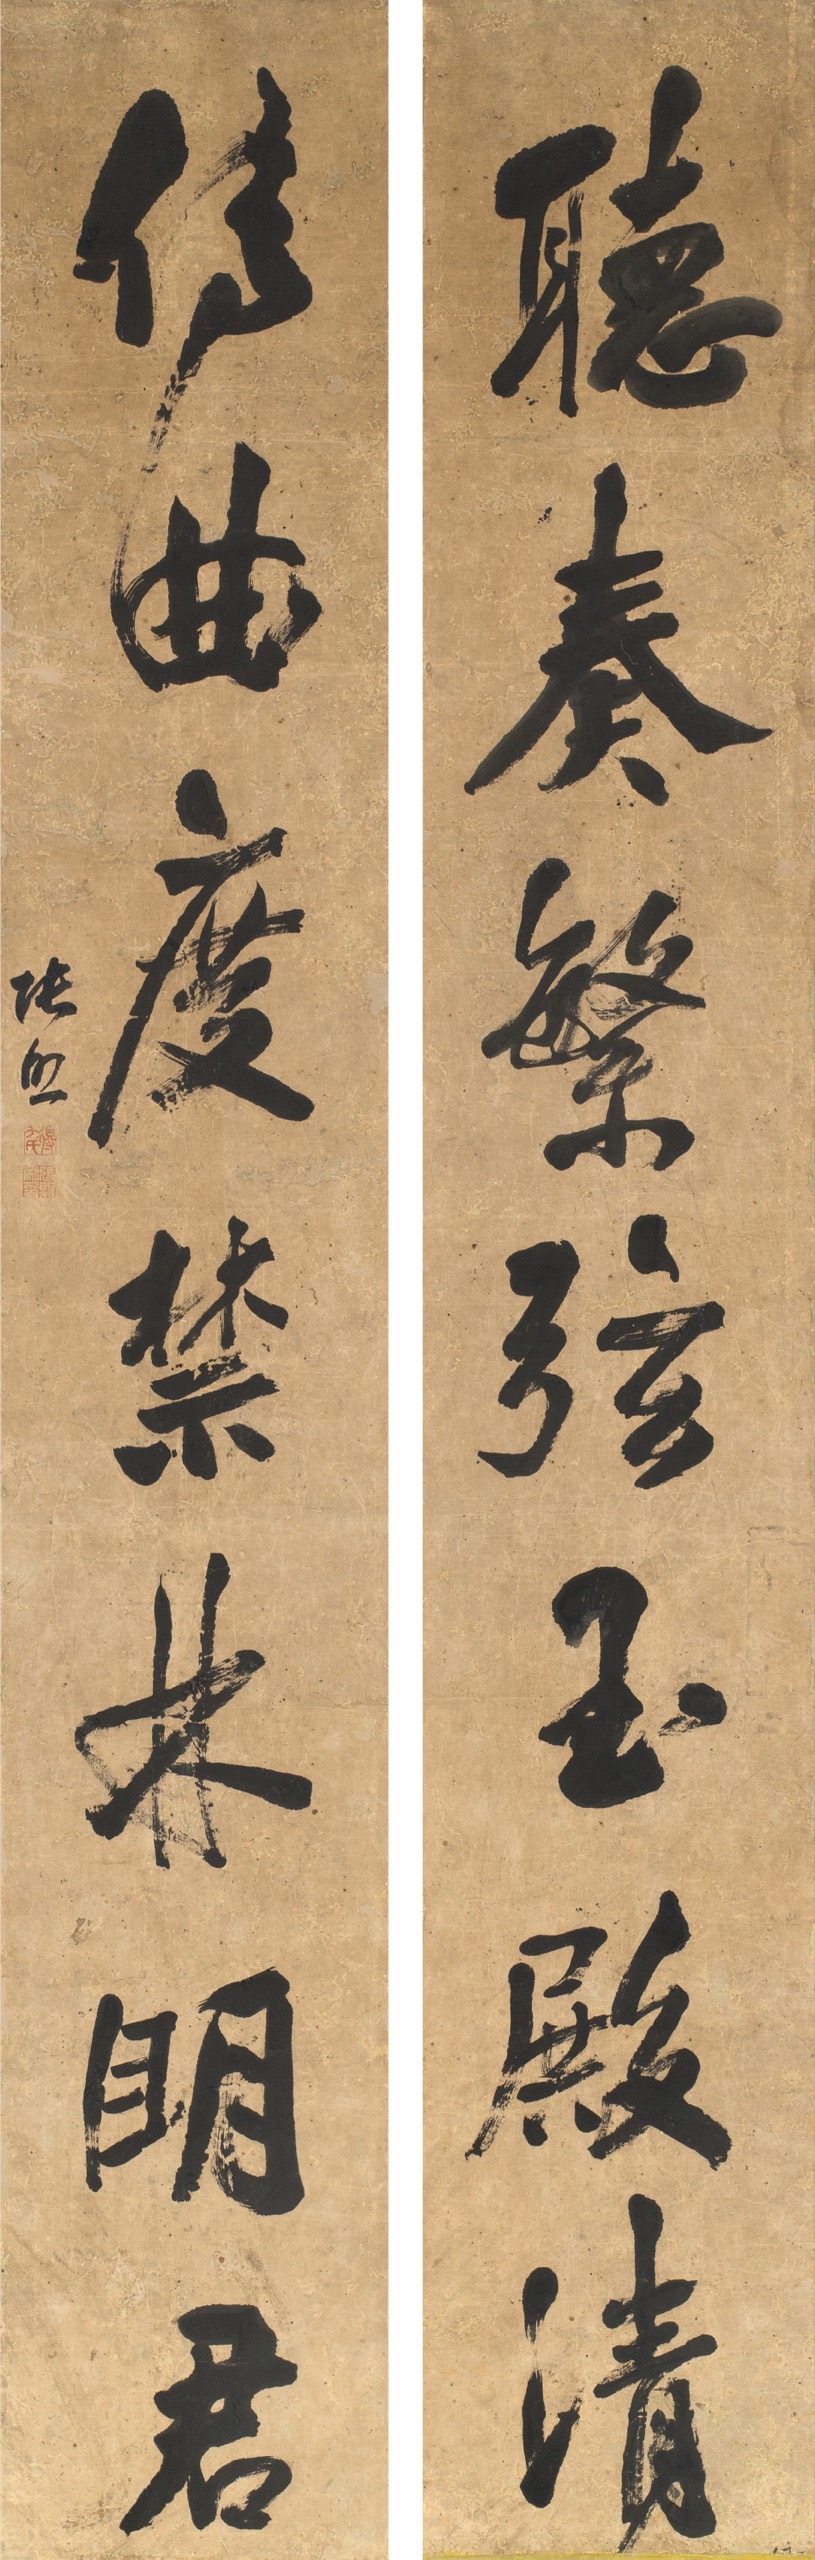 聽奏繁弦玉殿清
傳曲度禁林明君
張照